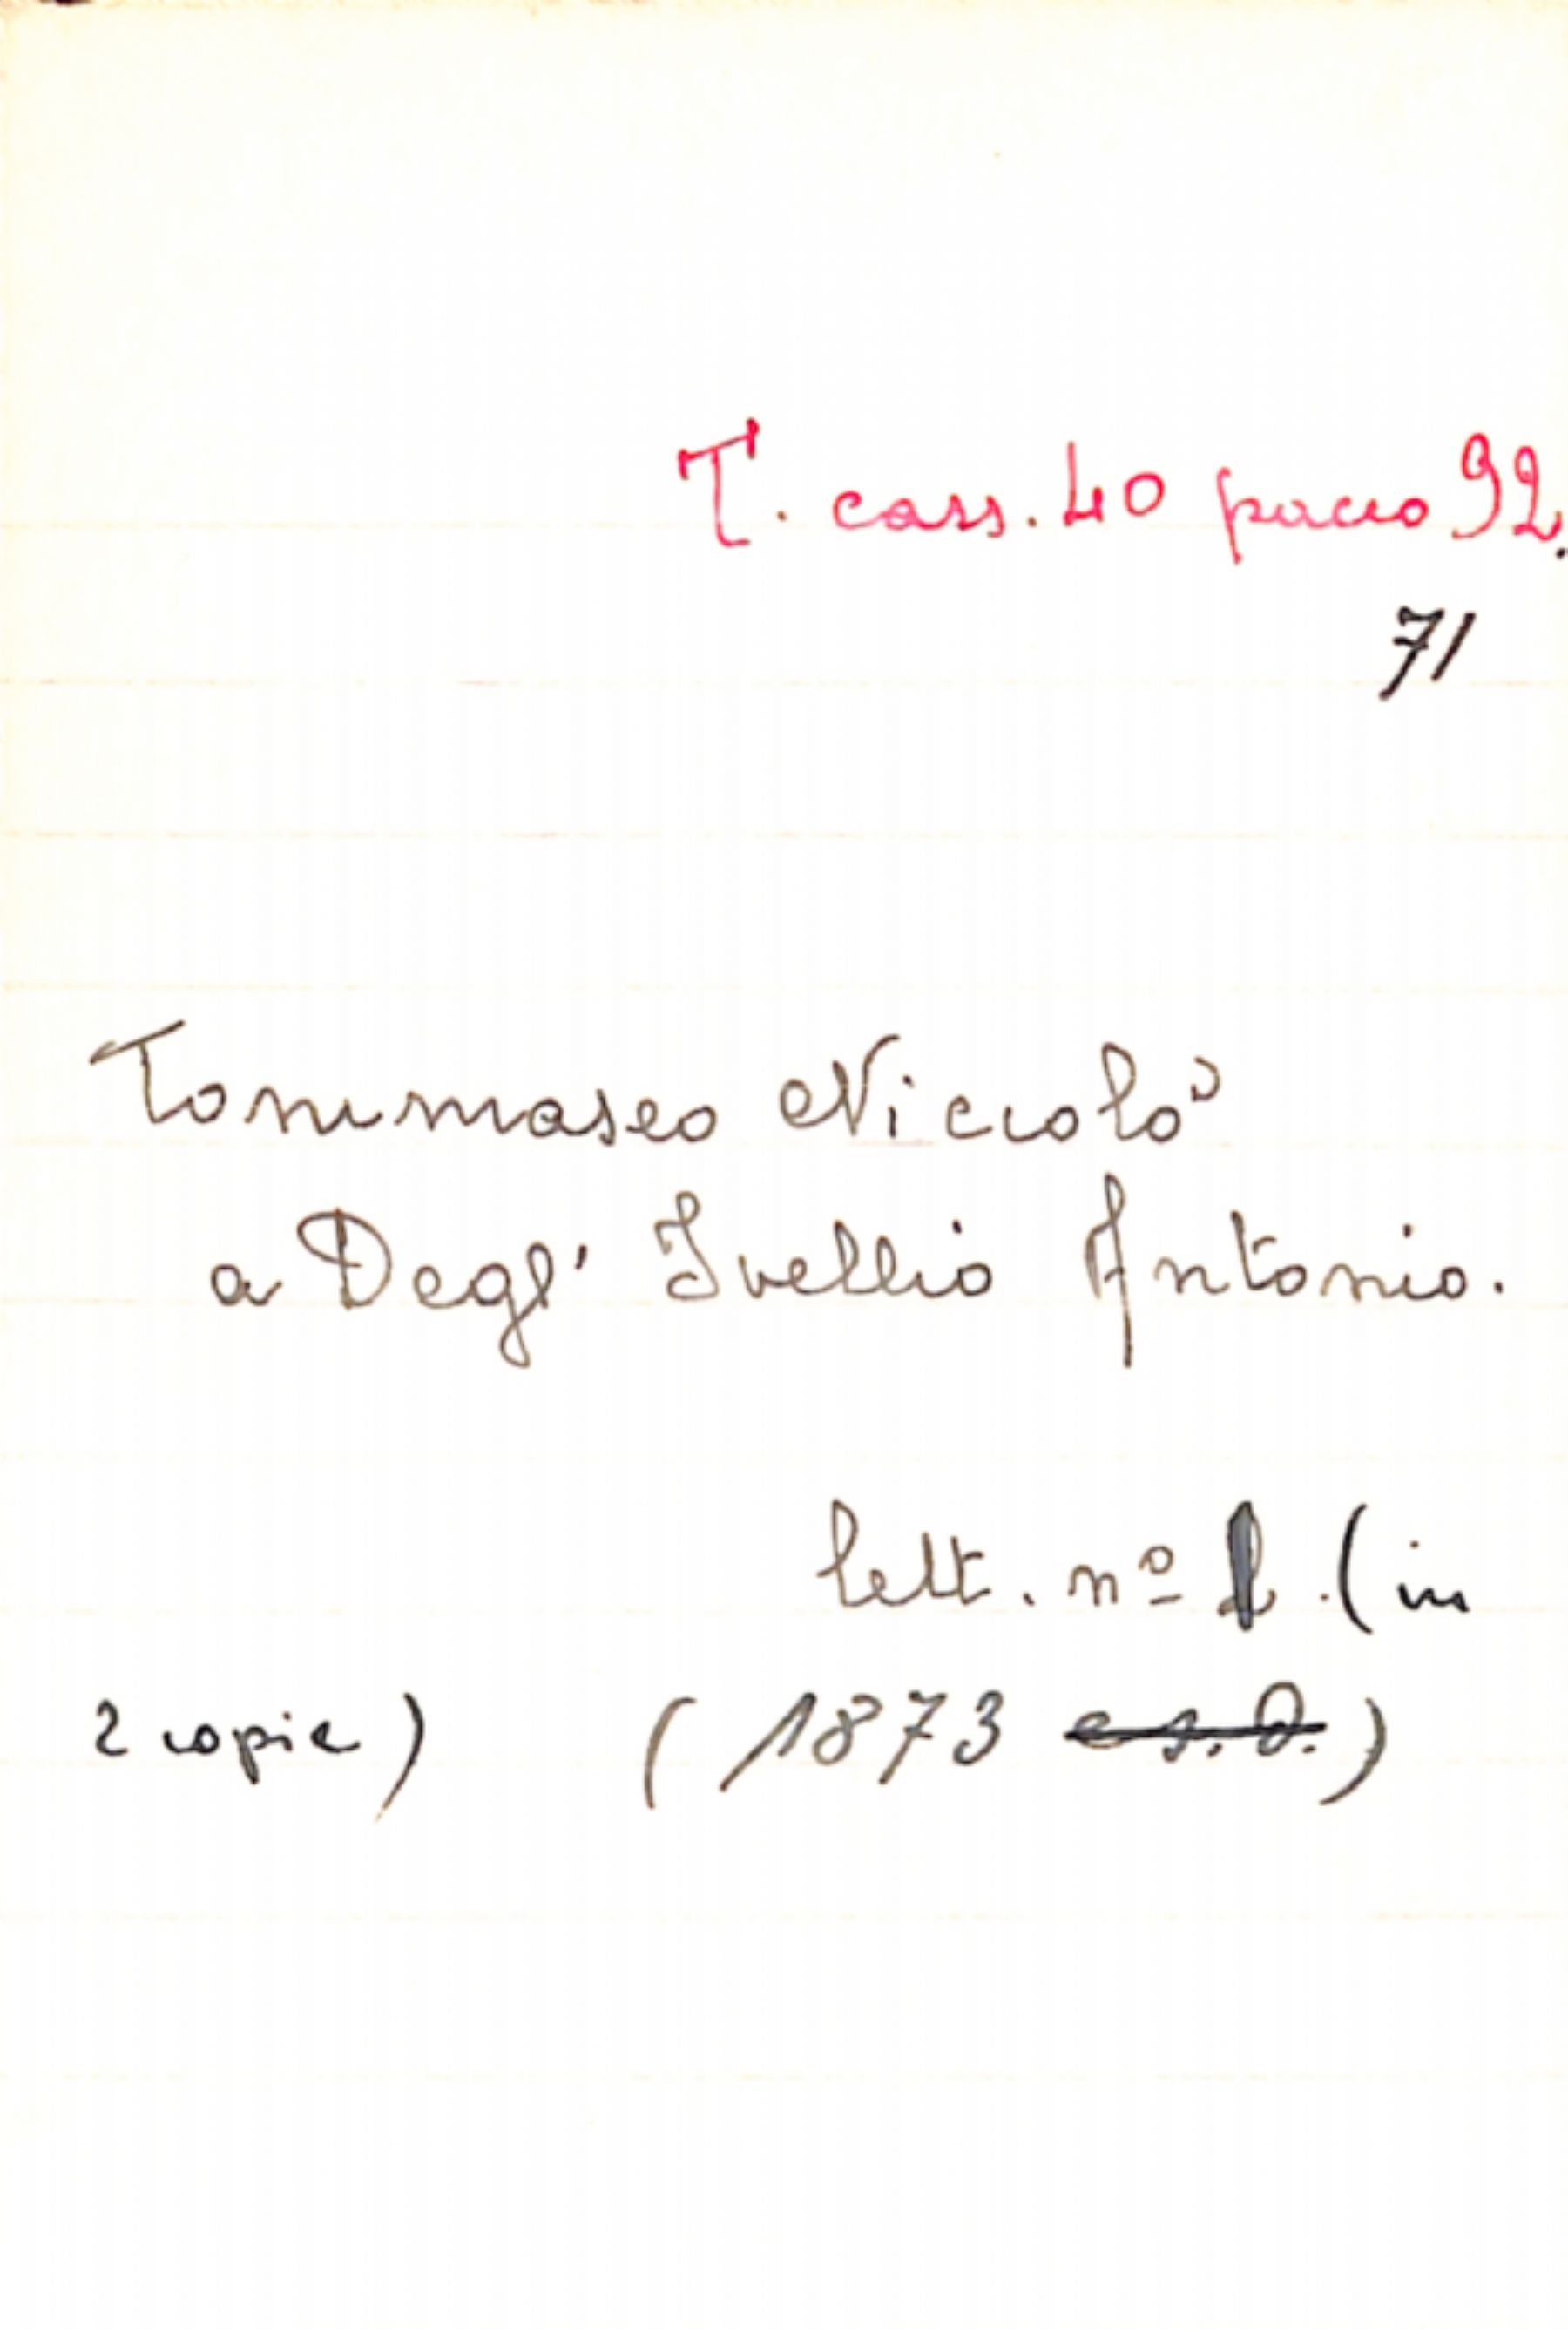 T. cass. 40 pacco 92.
71
Tommaseo Niccolò
a Degl' Ivellio Antonio.
lett. nº 1 (in
2 copie) (1873 e s.d.)